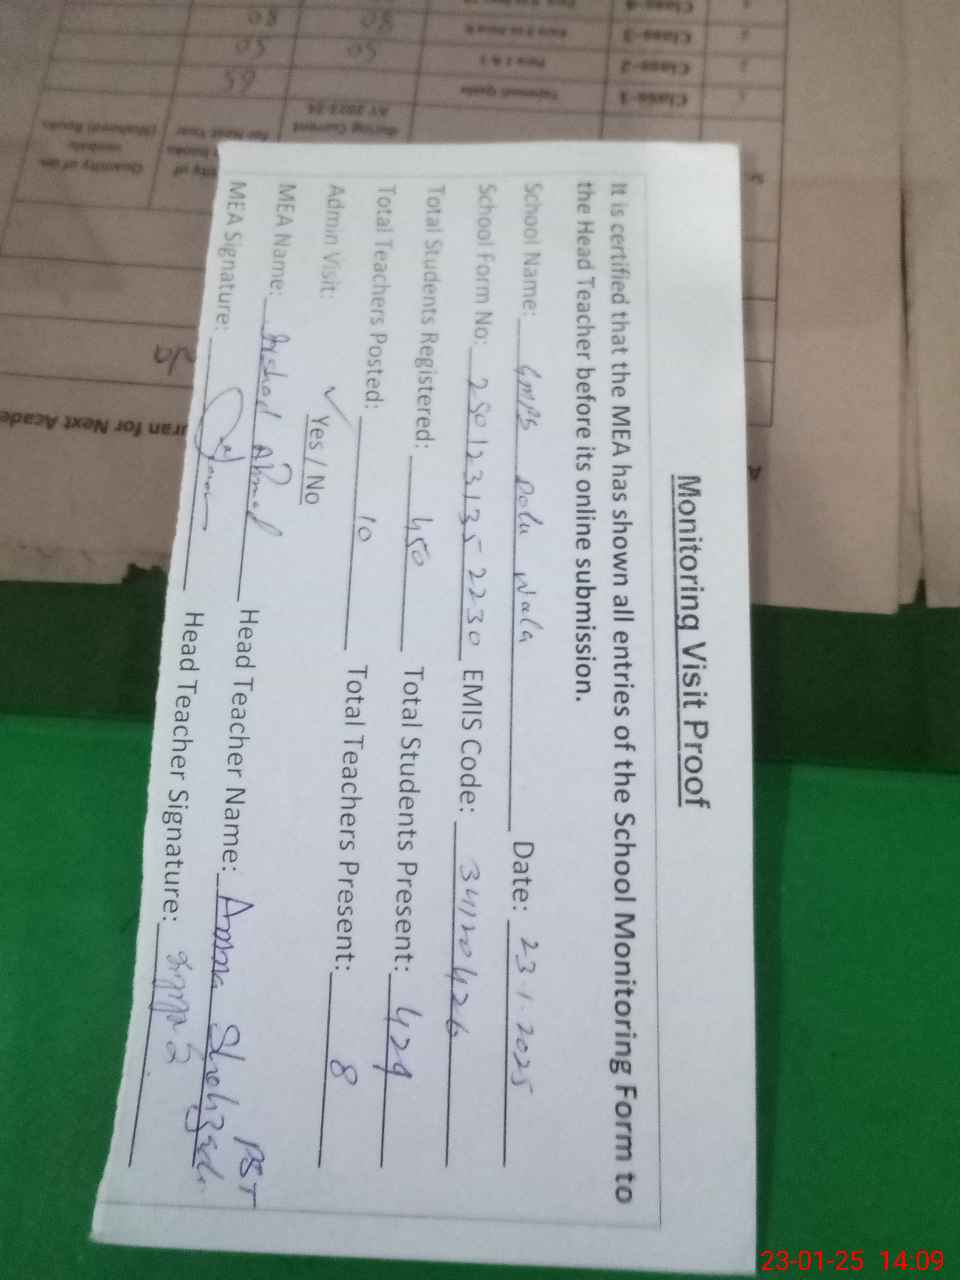 Monitoring Visit Proof
It is certified that the MEA has shown all entries of the School Monitoring Form to
the Head Teacher before its online submission.
School Name: GMPS Dolu Wala Date: 23.1.2025
School Form No: 2501231352230 EMIS Code: 34120426
Total Students Registered: 450 Total Students Present: 429
Total Teachers Posted: 10 Total Teachers Present: 8
Admin Visit: ✓ Yes / No
MEA Name: Arshad Ahmad Head Teacher Name: Asma Shahzadi PST
MEA Signature: Head Teacher Signature:
Class-3
Class-2
Class-1
AY 2023-24
during Current
for Next Year
uran for Next Acade
23-01-25 14:09